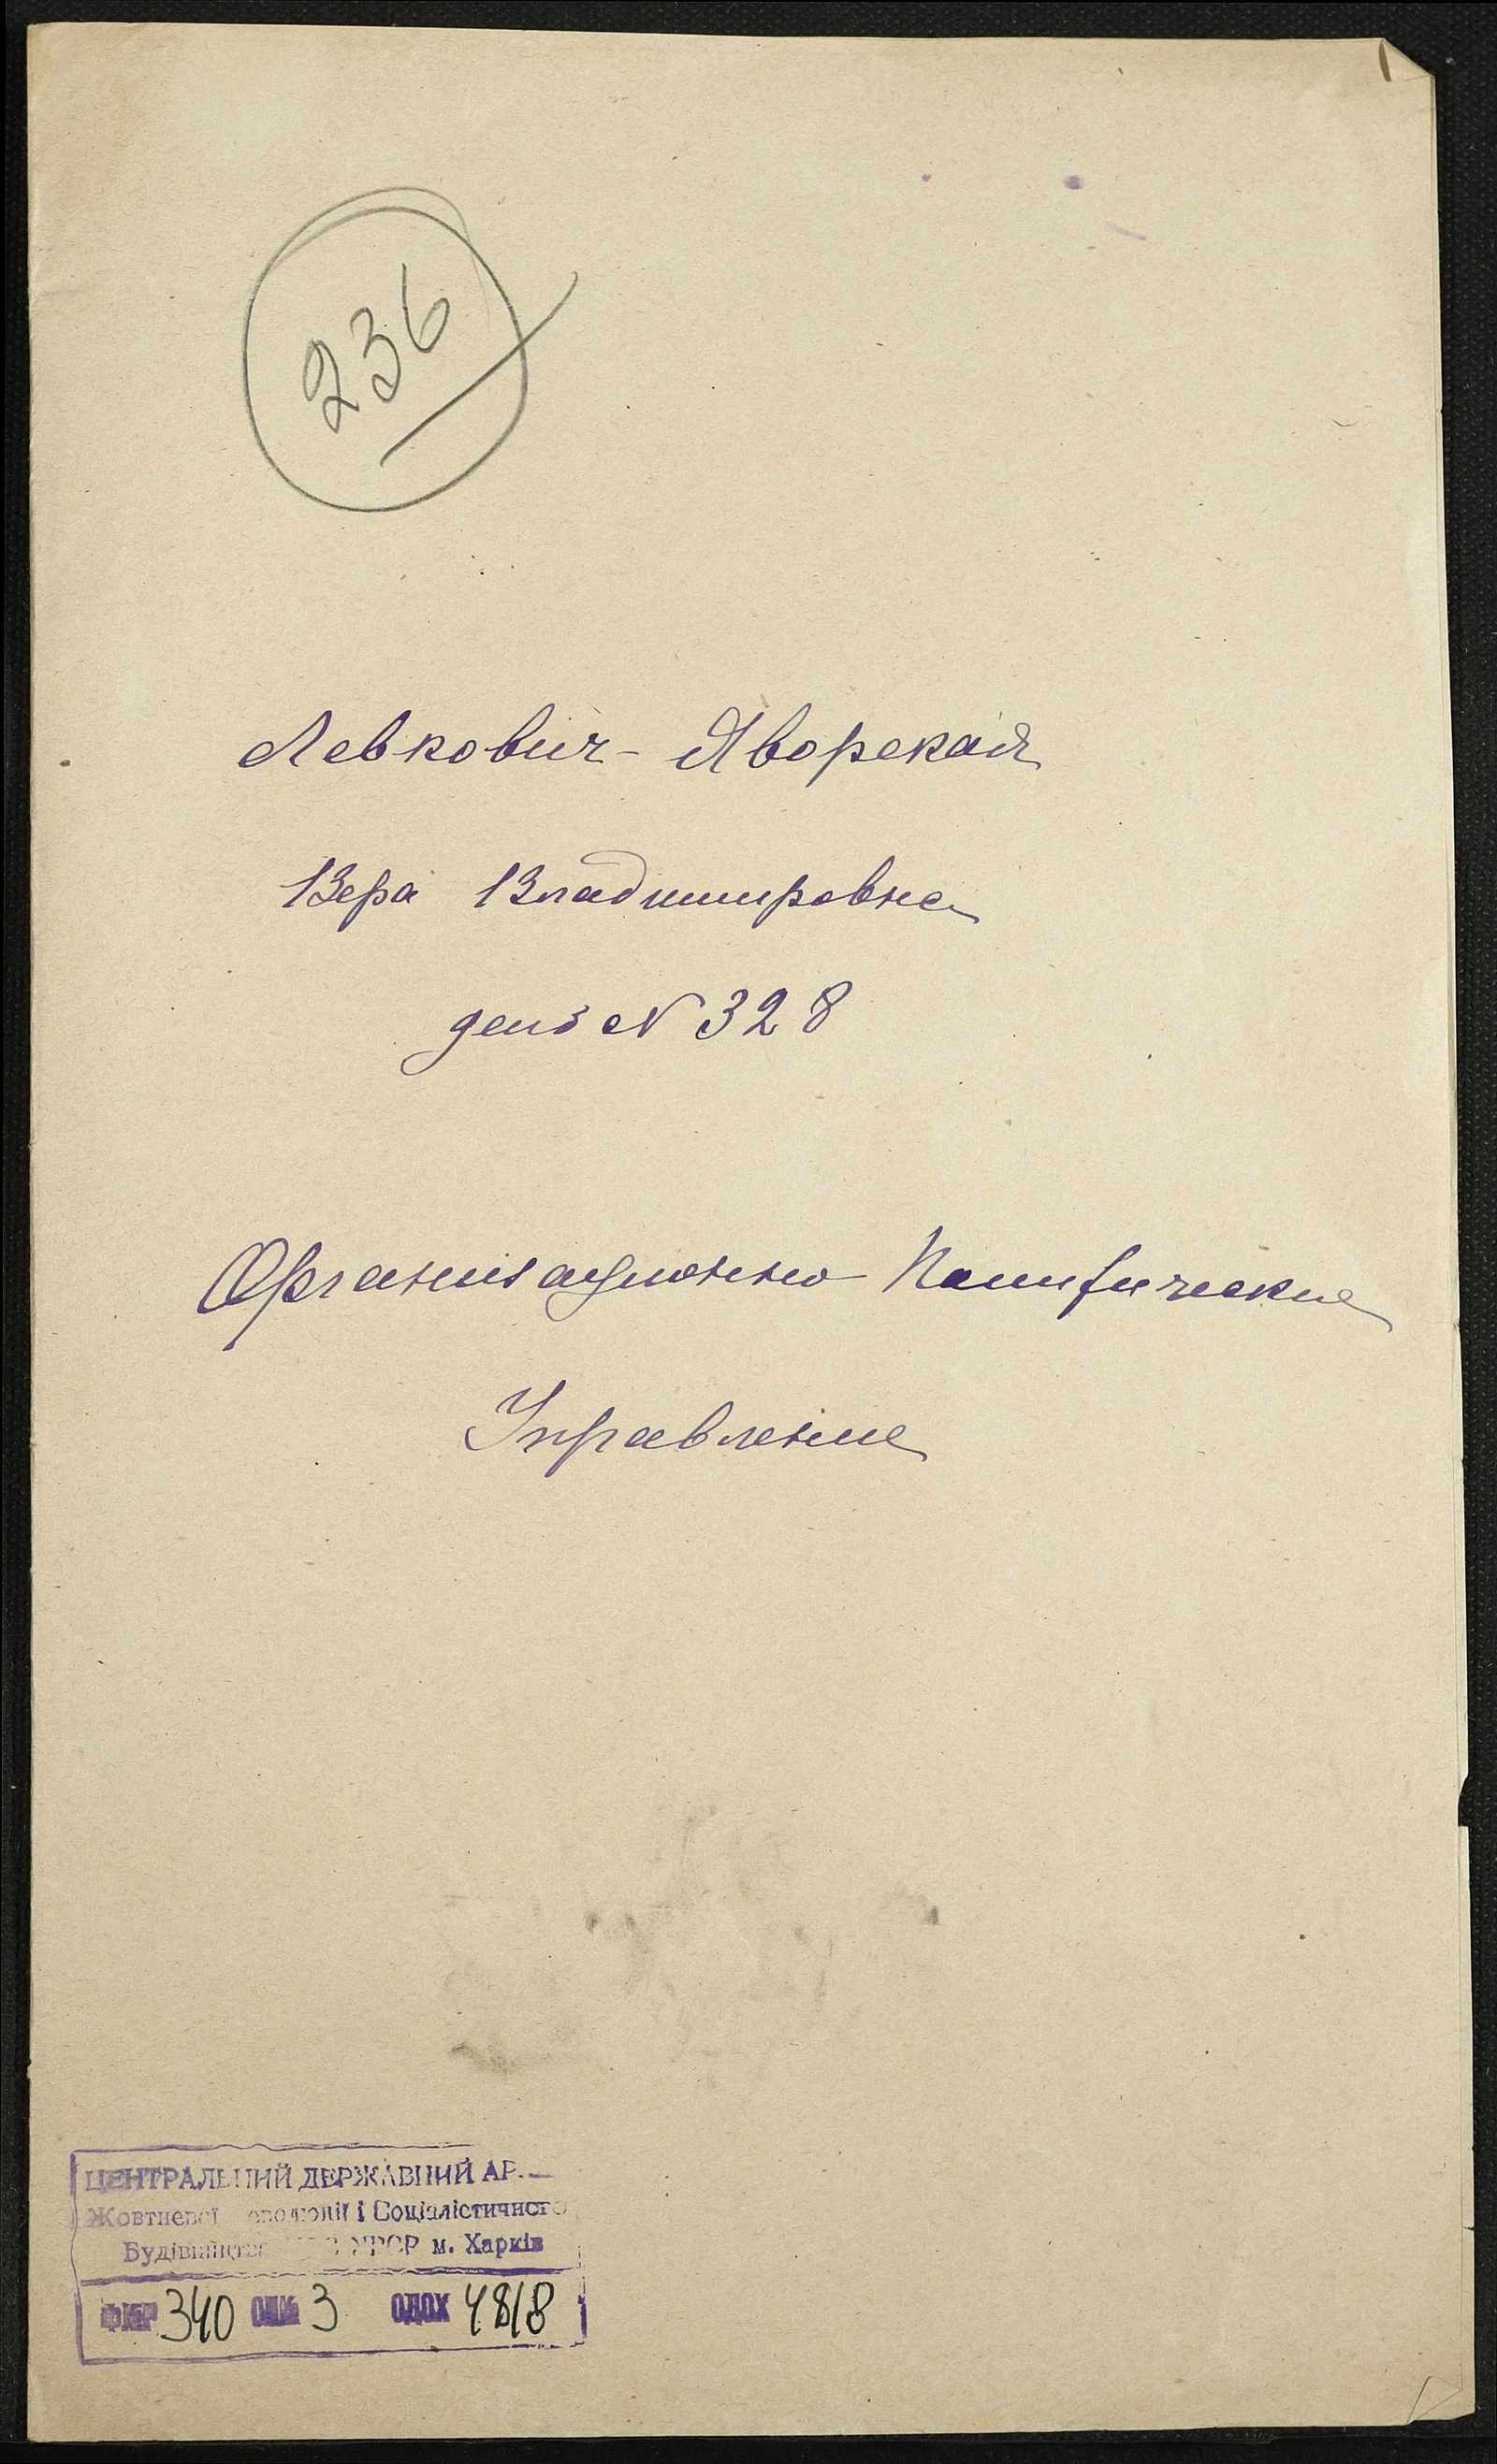 236
Левкович-Яворская
Вера Владимировна
дело N 328
Организационно-Политические
Управление
ЦЕНТРАЛЬНИЙ ДЕРЖАВНИЙ АР
Жовтневої революції і Соціалістичного
Будівництва УРСР м. Харків
340 3 4818